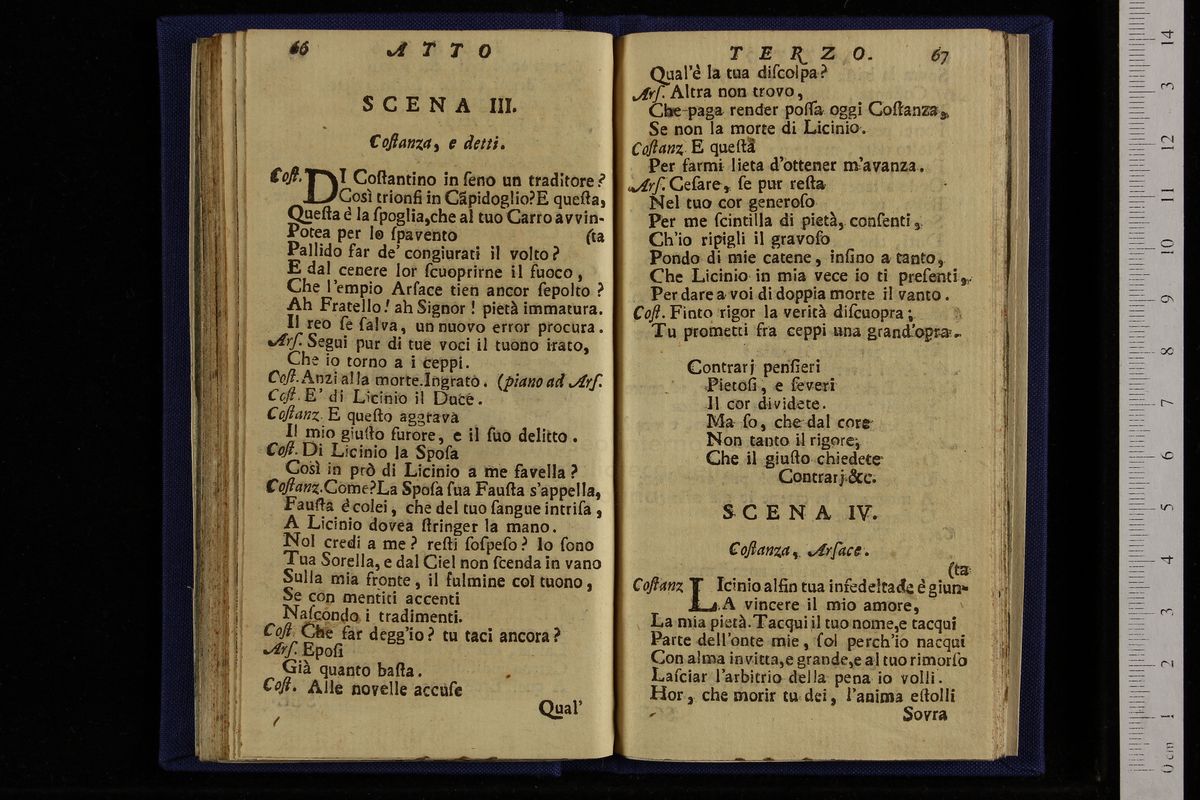 66 ATTO
SCENA III.
Coſtanza, e detti.
Coſt. DI Coſtantino in ſeno un traditore?
Così trionfi in Cāpidoglio? E queſta,
Queſta è la ſpoglia, che al tuo Carro avvin-
Potea per lo ſpavento (ta
Pallido far de' congiurati il volto?
E dal cenere lor ſcuoprirne il fuoco,
Che l'empio Arſace tien ancor ſepolto?
Ah Fratello! ah Signor! pietà immatura.
Il reo ſe ſalva, un nuovo error procura.
Arſ. Segui pur di tue voci il tuono irato,
Che io torno a i ceppi.
Coſt. Anzi alla morte. Ingrato. (piano ad Arſ.
Coſt. E' di Licinio il Duce.
Coſtanz. E queſto aggrava
Il mio giuſto furore, e il ſuo delitto.
Coſt. Di Licinio la Spoſa
Così in prò di Licinio a me favella?
Coſtanz. Come? La Spoſa ſua Fauſta s'appella,
Fauſta è colei, che del tuo ſangue intriſa,
A Licinio dovea ſtringer la mano.
Nol credi a me? reſti ſoſpeſo? Io ſono
Tua Sorella, e dal Ciel non ſcenda in vano
Sulla mia fronte, il fulmine col tuono,
Se con mentiti accenti
Naſcondo i tradimenti.
Coſt. Che far degg'io? tu taci ancora?
Arſ. Epoſi
Già quanto baſta.
Coſt. Alle novelle accuſe
Qual'
TERZO. 67
Qual'è la tua diſcolpa?
Arſ. Altra non trovo,
Che paga render poſſa oggi Coſtanza,
Se non la morte di Licinio.
Coſtanz. E queſta
Per farmi lieta d'ottener m'avanza.
Arſ. Ceſare, ſe pur reſta
Nel tuo cor generoſo
Per me ſcintilla di pietà, conſenti,
Ch'io ripigli il gravoſo
Pondo di mie catene, inſino a tanto,
Che Licinio in mia vece io ti preſenti,
Per dare a voi di doppia morte il vanto.
Coſt. Finto rigor la verità diſcuopra;
Tu prometti fra ceppi una grand'opra.
Contrarj penſieri
Pietoſi, e ſeveri
Il cor dividete.
Ma ſo, che dal core
Non tanto il rigore,
Che il giuſto chiedete
Contrarj &c.
SCENA IV.
Coſtanza, Arſace.
(ta
Coſtanz LIcinio alfin tua infedeltade è giun-
A vincere il mio amore,
La mia pietà. Tacqui il tuo nome, e tacqui
Parte dell'onte mie, ſol perch'io nacqui
Con alma invitta, e grande, e al tuo rimorſo
Laſciar l'arbitrio della pena io volli.
Hor, che morir tu dei, l'anima eſtolli
Sovra
0 cm 1 2 3 4 5 6 7 8 9 10 11 12 3 14